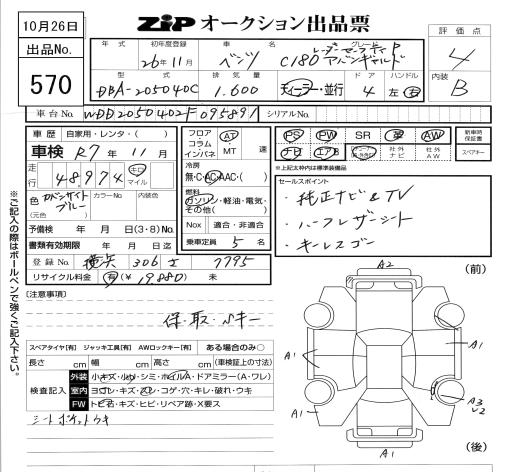 10月26日
ZIP オークション出品票
出品No.
570
評価点
4
内装
B
年式 初年度登録 車名 グレード
26年11月 ベンツ C180 レーダーセーフティP アバンギャルド
型式 排気量 ドア ハンドル
DBA-205040C 1.600 ディーラー・並行 4 左・右
車台No. WDD2050402F095891 シリアルNo.
車歴 自家用・レンタ・( )
車検 R7年11月
走行 48,974 キロ マイル
色 カバンサイトブルー カラーNo. 内装色
(元色)
予備検 年 月 日(3・8)No.
書類有効期限 年 月 日迄
登録No. 横浜 306 7795
リサイクル料金 有(¥19,880) 未
フロア コラム インパネ AT MT 速
冷房
無・C・AC・AAC・( )
燃料
ガソリン・軽油・電気・その他( )
Nox 適合・非適合
乗車定員 5 名
PS PW SR 革 AW
ナビ エアB 社外ナビ 社外AW
新車時保証書
スペアキー
*上記太枠内は標準装備品
セールスポイント
・純正ナビ&TV
・ハーフレザーシート
・キーレスゴー
※ご記入の際はボールペンで強くご記入下さい。
[注意事項]
保・取・Sキー
スペアタイヤ[有] ジャッキ工具[有] AWロックキー[有] ある場合のみ○
長さ cm 幅 cm 高さ cm (車検証上の寸法)
検査記入
外装 小キズ・小凹・シミ・ホイルA・ドアミラー(A・ワレ)
室内 ヨゴレ・キズ・スレ・コゲ・穴・キレ・破れ・ウキ
FW トビ石・キズ・ヒビ・リペア跡・X要ス
シートポケットウキ
(前)
A2
A1
A1
A1
A3
A1
(後)